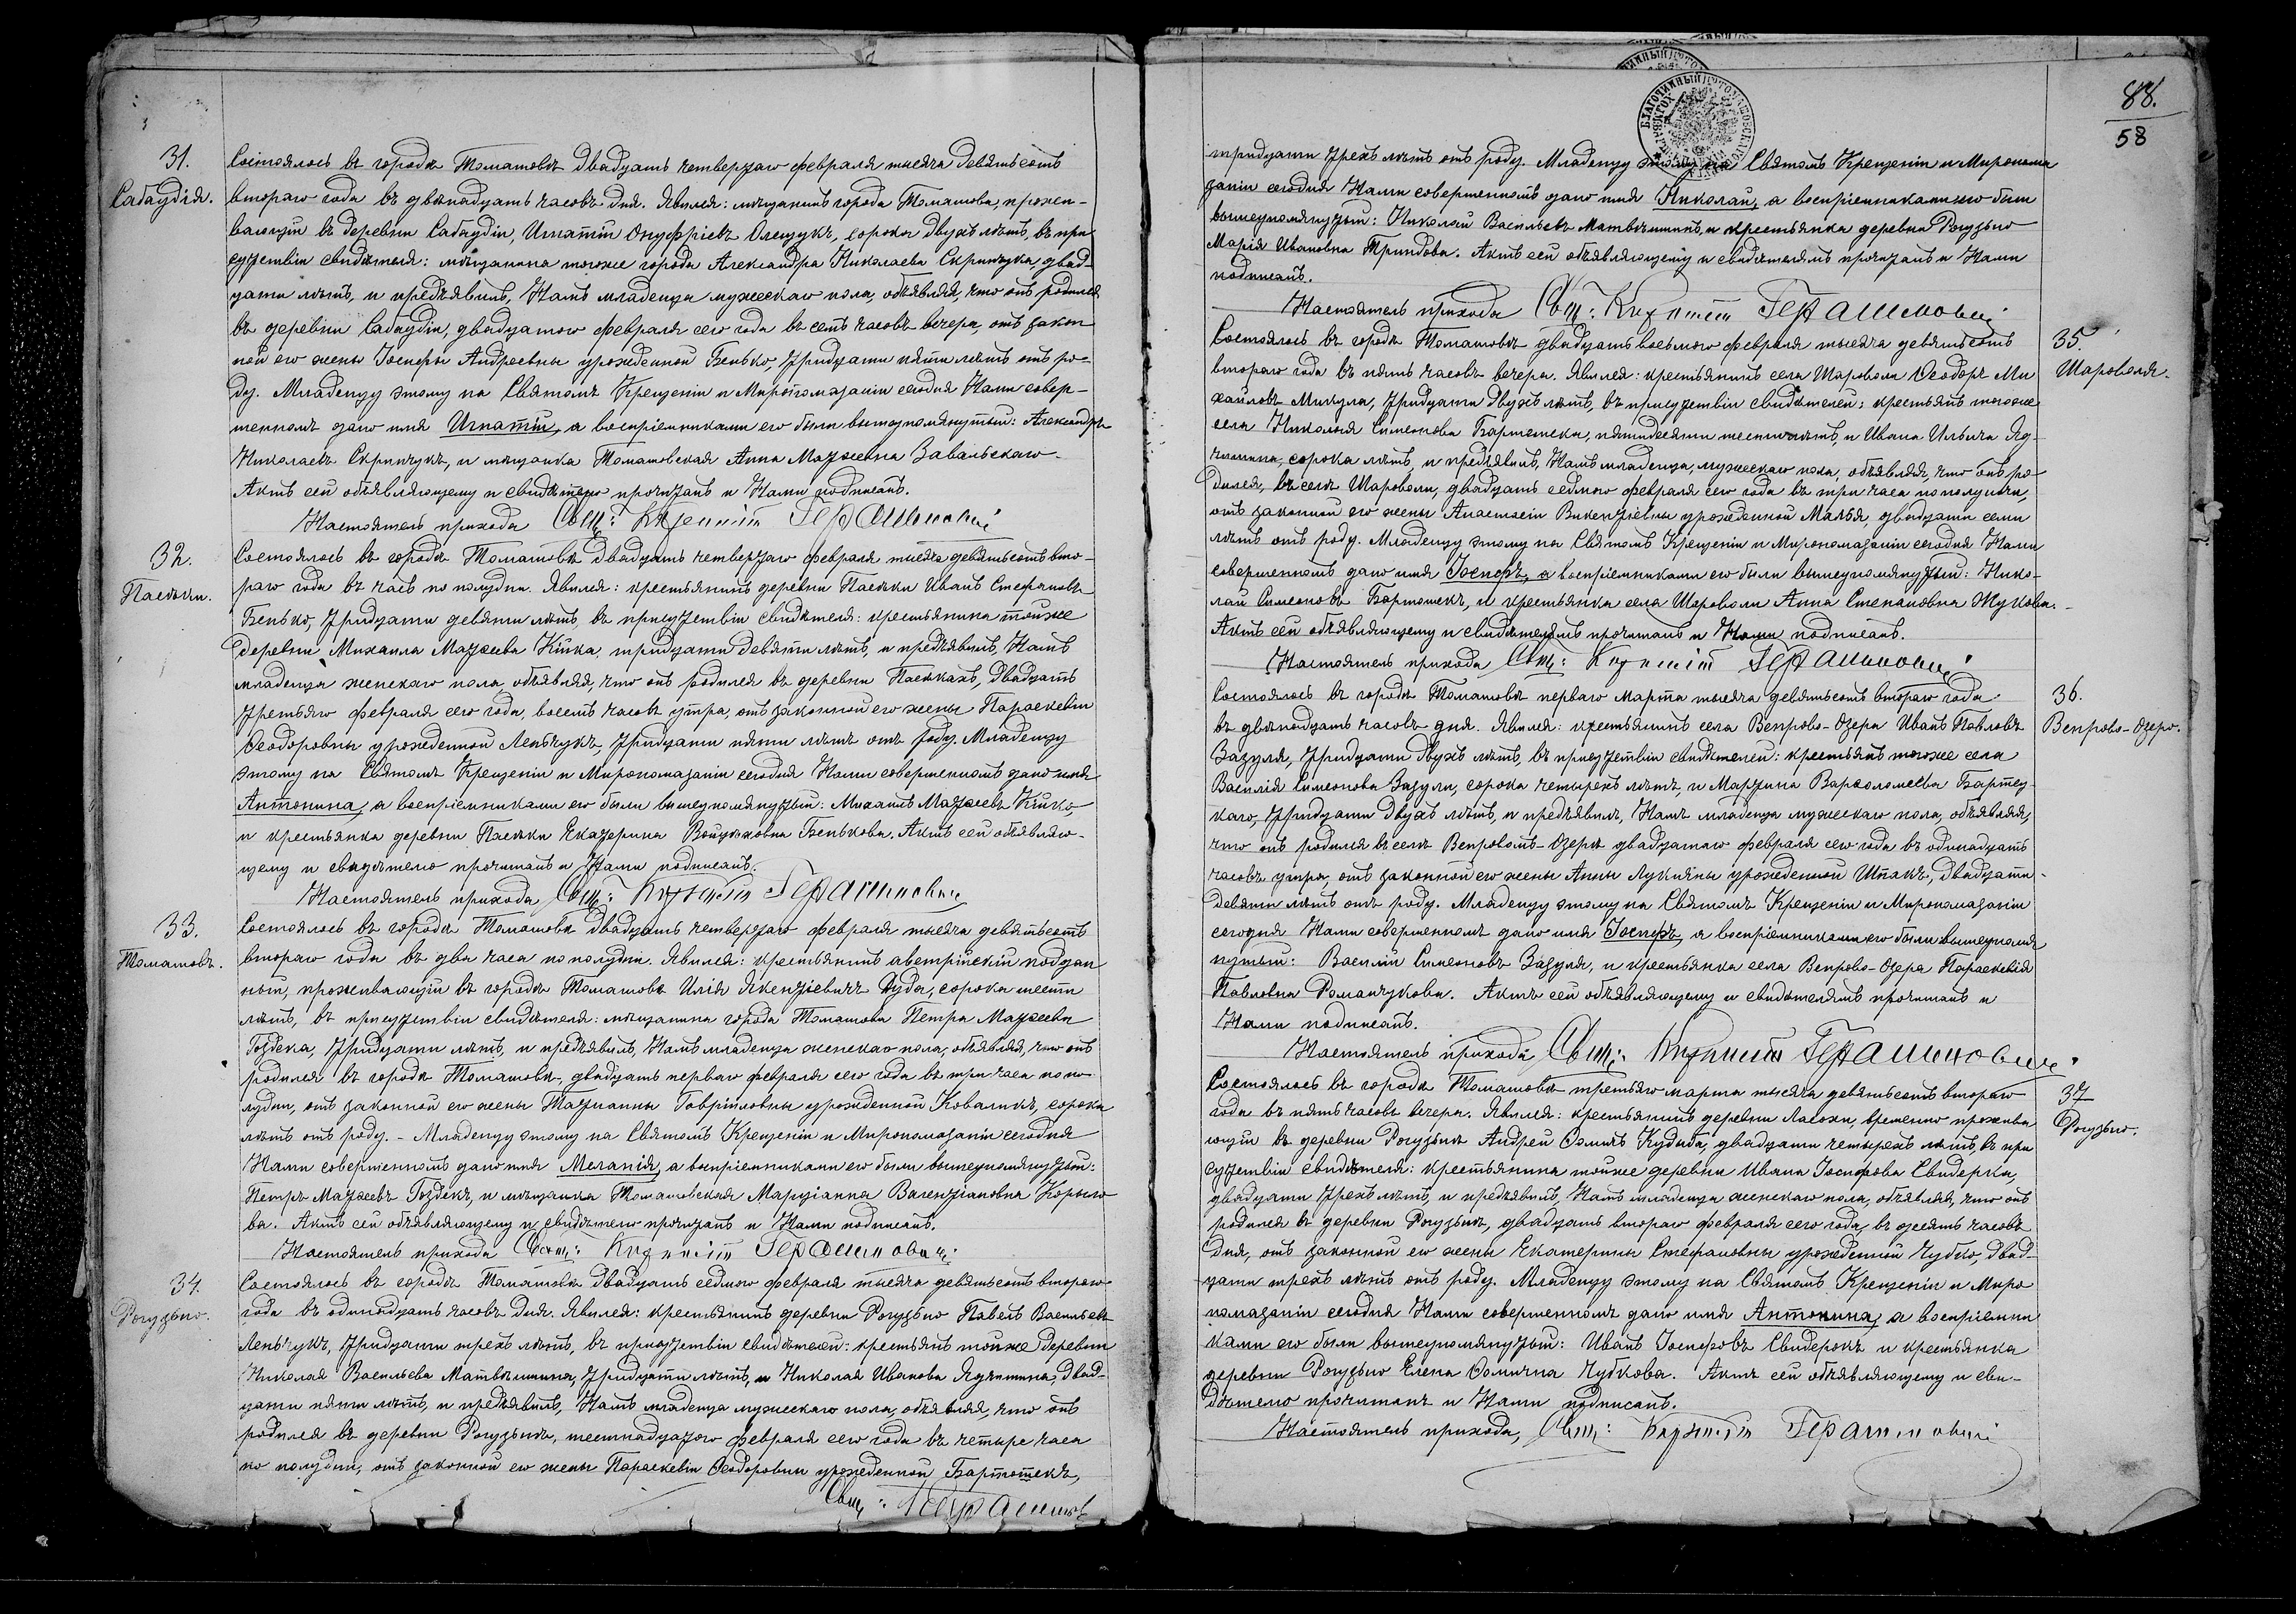 31.
Сабаудія.
Состоялось въ городѣ Томашовѣ двадцать четвертаго февраля тысяча девятьсотъ
втораго года въ двѣнадцать часовъ дня. Явился: мѣщанинъ города Томашова, прожи-
вающій въ деревни Сабаудіи, Игнатій Онуфріевъ Олещукъ, сорока двухъ лѣтъ, въ при
сутствіи свидѣтеля: мѣщанина тогоже города Александра Николаева Скрипчука, двад-
цати лѣтъ, и предъявилъ, Намъ младенца мужескаго пола, объявляя, что онъ родился
въ деревни Сабаудіи, двадцатого февраля сего года въ семь часовъ вечера, отъ закон
ной его жены Іосифы Андреевны урожденной Бенько, тридцати пяти лѣтъ отъ ро-
ду. Младенцу этому на Святомъ Крещеніи и Миропомазаніи сегодня Нами совер-
шенномъ дано имя Игнатій, а воспріемниками его были вышеупомянутый: Александръ
Николаевъ Скрипчукъ, и мѣщанка Томашовская Анна Матѳеевна Завальскаго.
Актъ сей объявляющему и свидѣтелю прочитанъ и Нами подписанъ.
Настоятель прихода Свящ: Герашиновичъ
32.
Пасѣки.
Состоялось въ городѣ Томашовѣ двадцать четвертаго февраля тысяча девятьсотъ вто-
раго года въ часъ по полудни. Явился: крестьянинъ деревни Пасѣки Иванъ Стефановъ
Бенько, тридцати девяти лѣтъ, въ присутствіи свидѣтеля: крестьянина тойже
деревни Михаила Матѳеева Кѝка, тридцати девяти лѣтъ, и предъявилъ, Намъ
младенца женскаго пола, объявляя, что онъ родился въ деревни Пасѣкахъ, двадцать
третьяго февраля сего года, восемь часовъ утра, отъ законной его жены Параскевіи
Ѳеодоровны урожденной Ленчукъ, тридцати пяти лѣтъ отъ роду. Младенцу
этому на Святомъ Крещеніи и Миропомазаніи сегодня Нами совершенномъ дано имя
Антонина, а воспріемниками его были вышеупомянутый: Михаилъ Матѳеевъ Кико,
и крестьянка деревни Пасѣки Екатерина Войцѣховна Бенькова. Актъ сей объявляю-
щему и свидѣтелю прочитанъ и Нами подписанъ.
Настоятель прихода Свящ: Герашиновичъ
33.
Томашовъ.
Состоялось въ городѣ Томашовѣ двадцать четвертаго февраля тысяча девятьсотъ
втораго года въ два часа по полудни. Явился: крестьянинъ австрійскій поддан
ный, проживающій въ городѣ Томашовѣ Илія Дуда, сорока шести
лѣтъ, въ присутствіи свидѣтеля: мѣщанина города Томашова Петра Матѳеева
Гоздека, тридцати лѣтъ, и предъявилъ, Намъ младенца женскаго пола, объявляя, что онъ
родился въ городѣ Томашовѣ, двадцать перваго февраля сего года въ три часа по по-
лудни, отъ законной его жены Татіанны Гавріиловны урожденной Коваликъ, сорока
лѣтъ отъ роду. - Младенцу этому на Святомъ Крещеніи и Миропомазаніи сегодня
Нами совершенномъ дано имя Меланія, а воспріемниками его были вышеупомянутый:
Петръ Матѳеевъ Гоздекъ, и мѣщанка Томашовская Маріанна Валентіановна
ва. Актъ сей объявляющему и свидѣтелю прочитанъ и Нами подписанъ.
Настоятель прихода Свящ: Герашиновичъ
34.
Рогузьно.
Состоялось въ городѣ Томашовѣ двадцать седмого февраля тысяча девятьсотъ второго
года въ одинадцать часовъ дня. Явился: крестьянинъ деревни Рогузьно Павелъ Васильевъ
Ленчукъ, тридцати трехъ лѣтъ, въ присутствіи свидѣтелей: крестьянъ тойже деревни
Николая Васильева Матвѣишина, тридцати лѣтъ, и Николая Иванова Ядчишина, двад-
цати пяти лѣтъ, и предъявилъ, Намъ младенца мужескаго пола, объявляя, что онъ
родился въ деревни Рогузьнѣ, шестнадцатого февраля сего года въ четыре часа
по полудни, отъ законной его жены Параскевіи Ѳеодоровны урожденной Бартошекъ,
Свящ:
88.
58
тридцати трехъ лѣтъ отъ роду. Младенцу этому на Святомъ Крещеніи и Миропома
заніи сегодня Нами совершенномъ дано имя Николай, а воспріемниками его были
вышеупомянутый: Николай Васильевъ Матвѣишинъ, и крестьянка деревни Рогузьно
Марія Ивановна Триндова. Актъ сей объявляющему и свидѣтелямъ прочитанъ и Нами
подписанъ.
Настоятель прихода Свящ: Герашиновичъ
35.
Шароволя.
Состоялось въ городѣ Томашовѣ двадцать восьмого февраля тысяча девятьсотъ
втораго года въ пять часовъ вечера. Явился: крестьянинъ села Шароволи Ѳеодоръ Ми
хайловъ Микула, тридцати двухъ лѣтъ, въ присутствіи свидѣтелей: крестьянъ тогоже
села Николая Симеонова Бартошека, пятидесяти шести лѣтъ, и Ивана Ильича Яд-
чишина, сорока лѣтъ, и предъявилъ, Намъ младенца, мужескаго пола, объявляя, что онъ ро-
дился, въ селѣ Шароволи, двадцать седмого февраля сего года въ три часа по полуночи,
отъ законной его жены Анастасіи Викентіевны урожденной Мальця, двадцати семи
лѣтъ отъ роду. Младенцу этому на Святомъ Крещеніи и Миропомазаніи сегодня Нами
совершенномъ дано имя Іосифъ, а воспріемниками его были вышеупомянутый: Нико-
лай Симеоновъ Бартошекъ, и крестьянка села Шароволи Анна Степановна Жукова.
Актъ сей объявляющему и свидѣтелямъ прочитанъ и Нами подписанъ.
Настоятель прихода Свящ: Герашиновичъ
36.
Вепрово-Озеро.
Состоялось въ городѣ Томашовѣ перваго марта тысяча девятьсотъ втораго года
въ двѣнадцать часовъ дня. Явился: крестьянинъ села Вепрово-Озера Иванъ Павловъ
Зазуля, тридцати двухъ лѣтъ, въ присутствіи свидѣтелей: крестьянъ тогоже села
Василія Симеонова Зазули, сорока четырехъ лѣтъ, и Мартина Варѳоломеева Бартец-
каго, тридцати двухъ лѣтъ, и предъявилъ, Намъ младенца мужескаго пола, объявляя,
что онъ родился въ селѣ Вепровомъ-Озерѣ двадцатаго февраля сего года въ одинадцать
часовъ утра, отъ законной его жены Анны Лукіяны урожденной Шпакъ, двадцати-
девяти лѣтъ отъ роду. Младенцу этому на Святомъ Крещеніи и Миропомазаніи
сегодня Нами совершенномъ дано имя Іосифъ, а воспріемниками его были вышеупомя
нутый: Василій Симеоновъ Зазуля, и крестьянка села Вепрово-Озера Параскевія
Павловна Романчукова. Актъ сей объявляющему и свидѣтелямъ прочитанъ и
Нами подписанъ.
Настоятель прихода Свящ: Герашиновичъ
37
Рогузьно.
Состоялось въ городѣ Томашовѣ третьяго марта тысяча девятьсотъ втораго
года въ пять часовъ вечера. Явился: крестьянинъ деревни Ласохи, временно прожива
ющій въ деревни Рогузьнѣ Андрей Ѳомичъ Кудыба, двадцати четырехъ лѣтъ, въ при
сутствіи свидѣтеля: крестьянина тойже деревни Ивана Іосифова Свидерка,
двадцати трехъ лѣтъ, и предъявилъ, Намъ младенца женскаго пола, объявляя, что онъ
родился въ деревни Рогузьнѣ, двадцать втораго февраля сего года, въ десять часовъ
дня, отъ законной его жены Екатерины Стефановны урожденной Чубко, двад-
цати трехъ лѣтъ отъ роду. Младенцу этому на Святомъ Крещеніи и Миро
помазаніи сегодня Нами совершенномъ дано имя Антонина, а воспріемни
ками его были вышеупомянутый: Иванъ Іосифовъ Свидерокъ и крестьянка
деревни Рогузьно Елена Ѳомична Чубкова. Актъ сей объявляющему и сви-
дѣтелю прочитанъ и Нами подписанъ.
Настоятель прихода, Свящ: Герашиновичъ